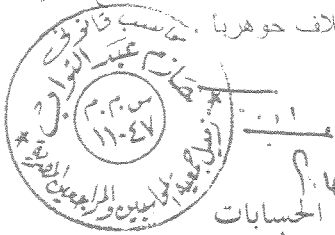 لاف جوهريا .
محاسب قانوني
حازم عبد التواب
س.م.م
١١٠٤٧
زميل جمعية المحاسبين والمراجعين المصرية
الحسابات